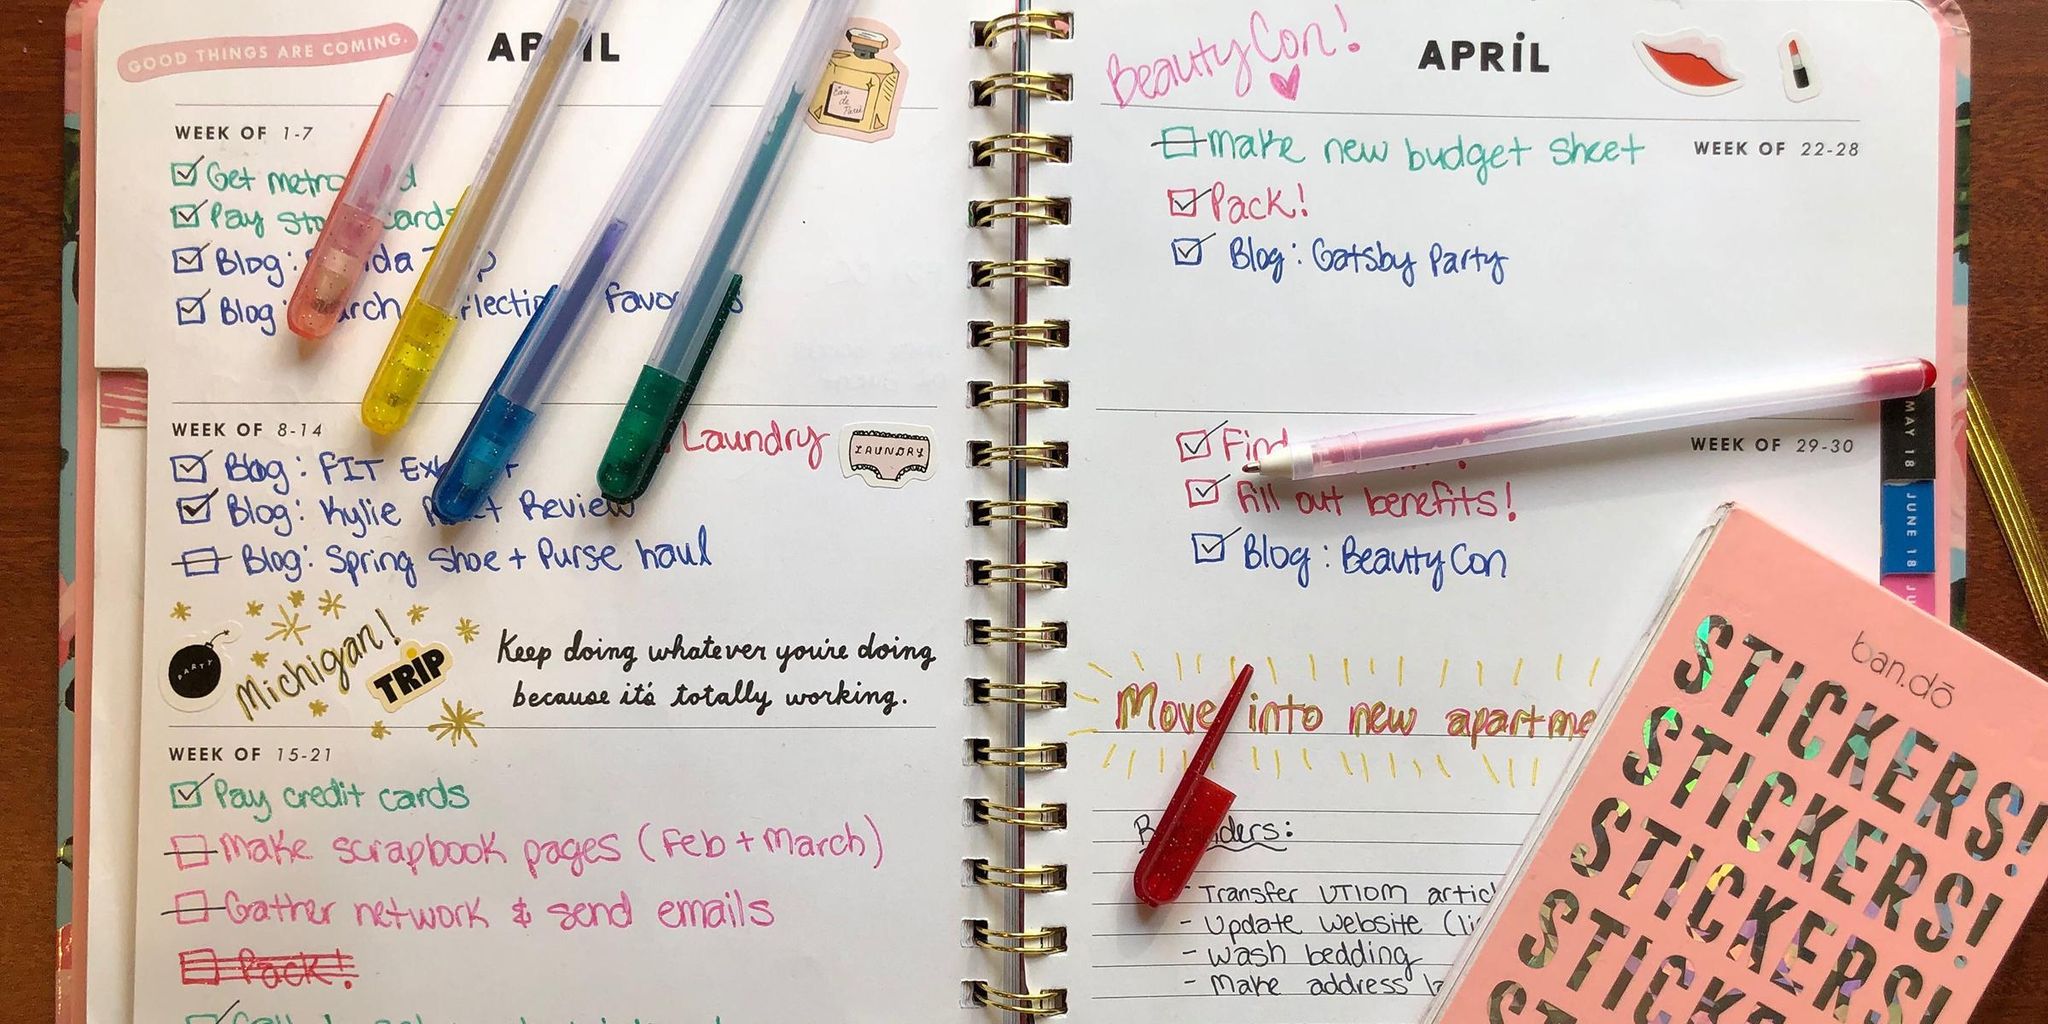 GOOD THINGS ARE COMING.
APRIL
Eau de Paris
WEEK OF 1-7
Get
Pay
Blog:
Blog
WEEK OF 8-14
Laundry
LAUNDRY
Blog: FIT
Blog: Kylie Review
Blog: Spring Shoe + Purse haul
PARTY
Michigan!
TRIP
Keep doing whatever you're doing
because it's totally working.
WEEK OF 15-21
Pay credit cards
Make scrapbook pages (Feb + March)
Gather network & send emails
Pack!
BeautyCon!
APRIL
Make new budget sheet
WEEK OF 22-28
Pack!
Blog: Gatsby Party
WEEK OF 29-30
Fill out benefits!
Blog: BeautyCon
Move into new
- Transfer UTIOM
- Update website
- Wash bedding
- Make address
MAY 18
JUNE 18
ban.dō
STICKERS!
STICKERS!
STICKERS!